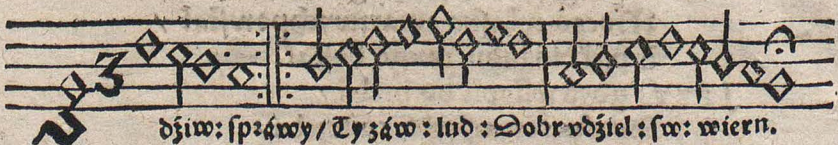 dźiw: ſpráwy / Ty záw: lud: Dobr vdźiel: ſw: wiern.